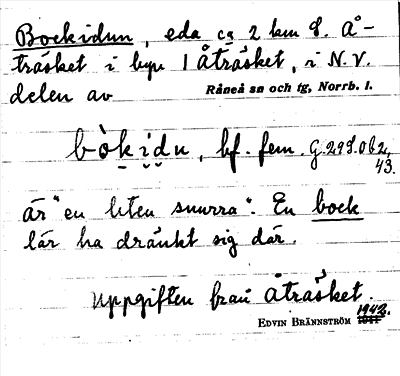 Bockidun, eda ca 2 km S. Å-
träsket i byn 1 Åträsket, i N.V.
delen av Råneå sn och tg, Norrb. l.
bòkidu, bf. fem. G.298.062,
43.
är "en liten snurra". En bock
lär ha dränkt sig där.
Uppgiften från Åträsket.
EDVIN BRÄNNSTRÖM 1942.